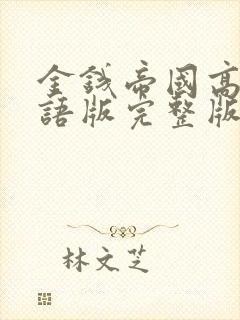 金錢帝國高
語版完整版
林文芝